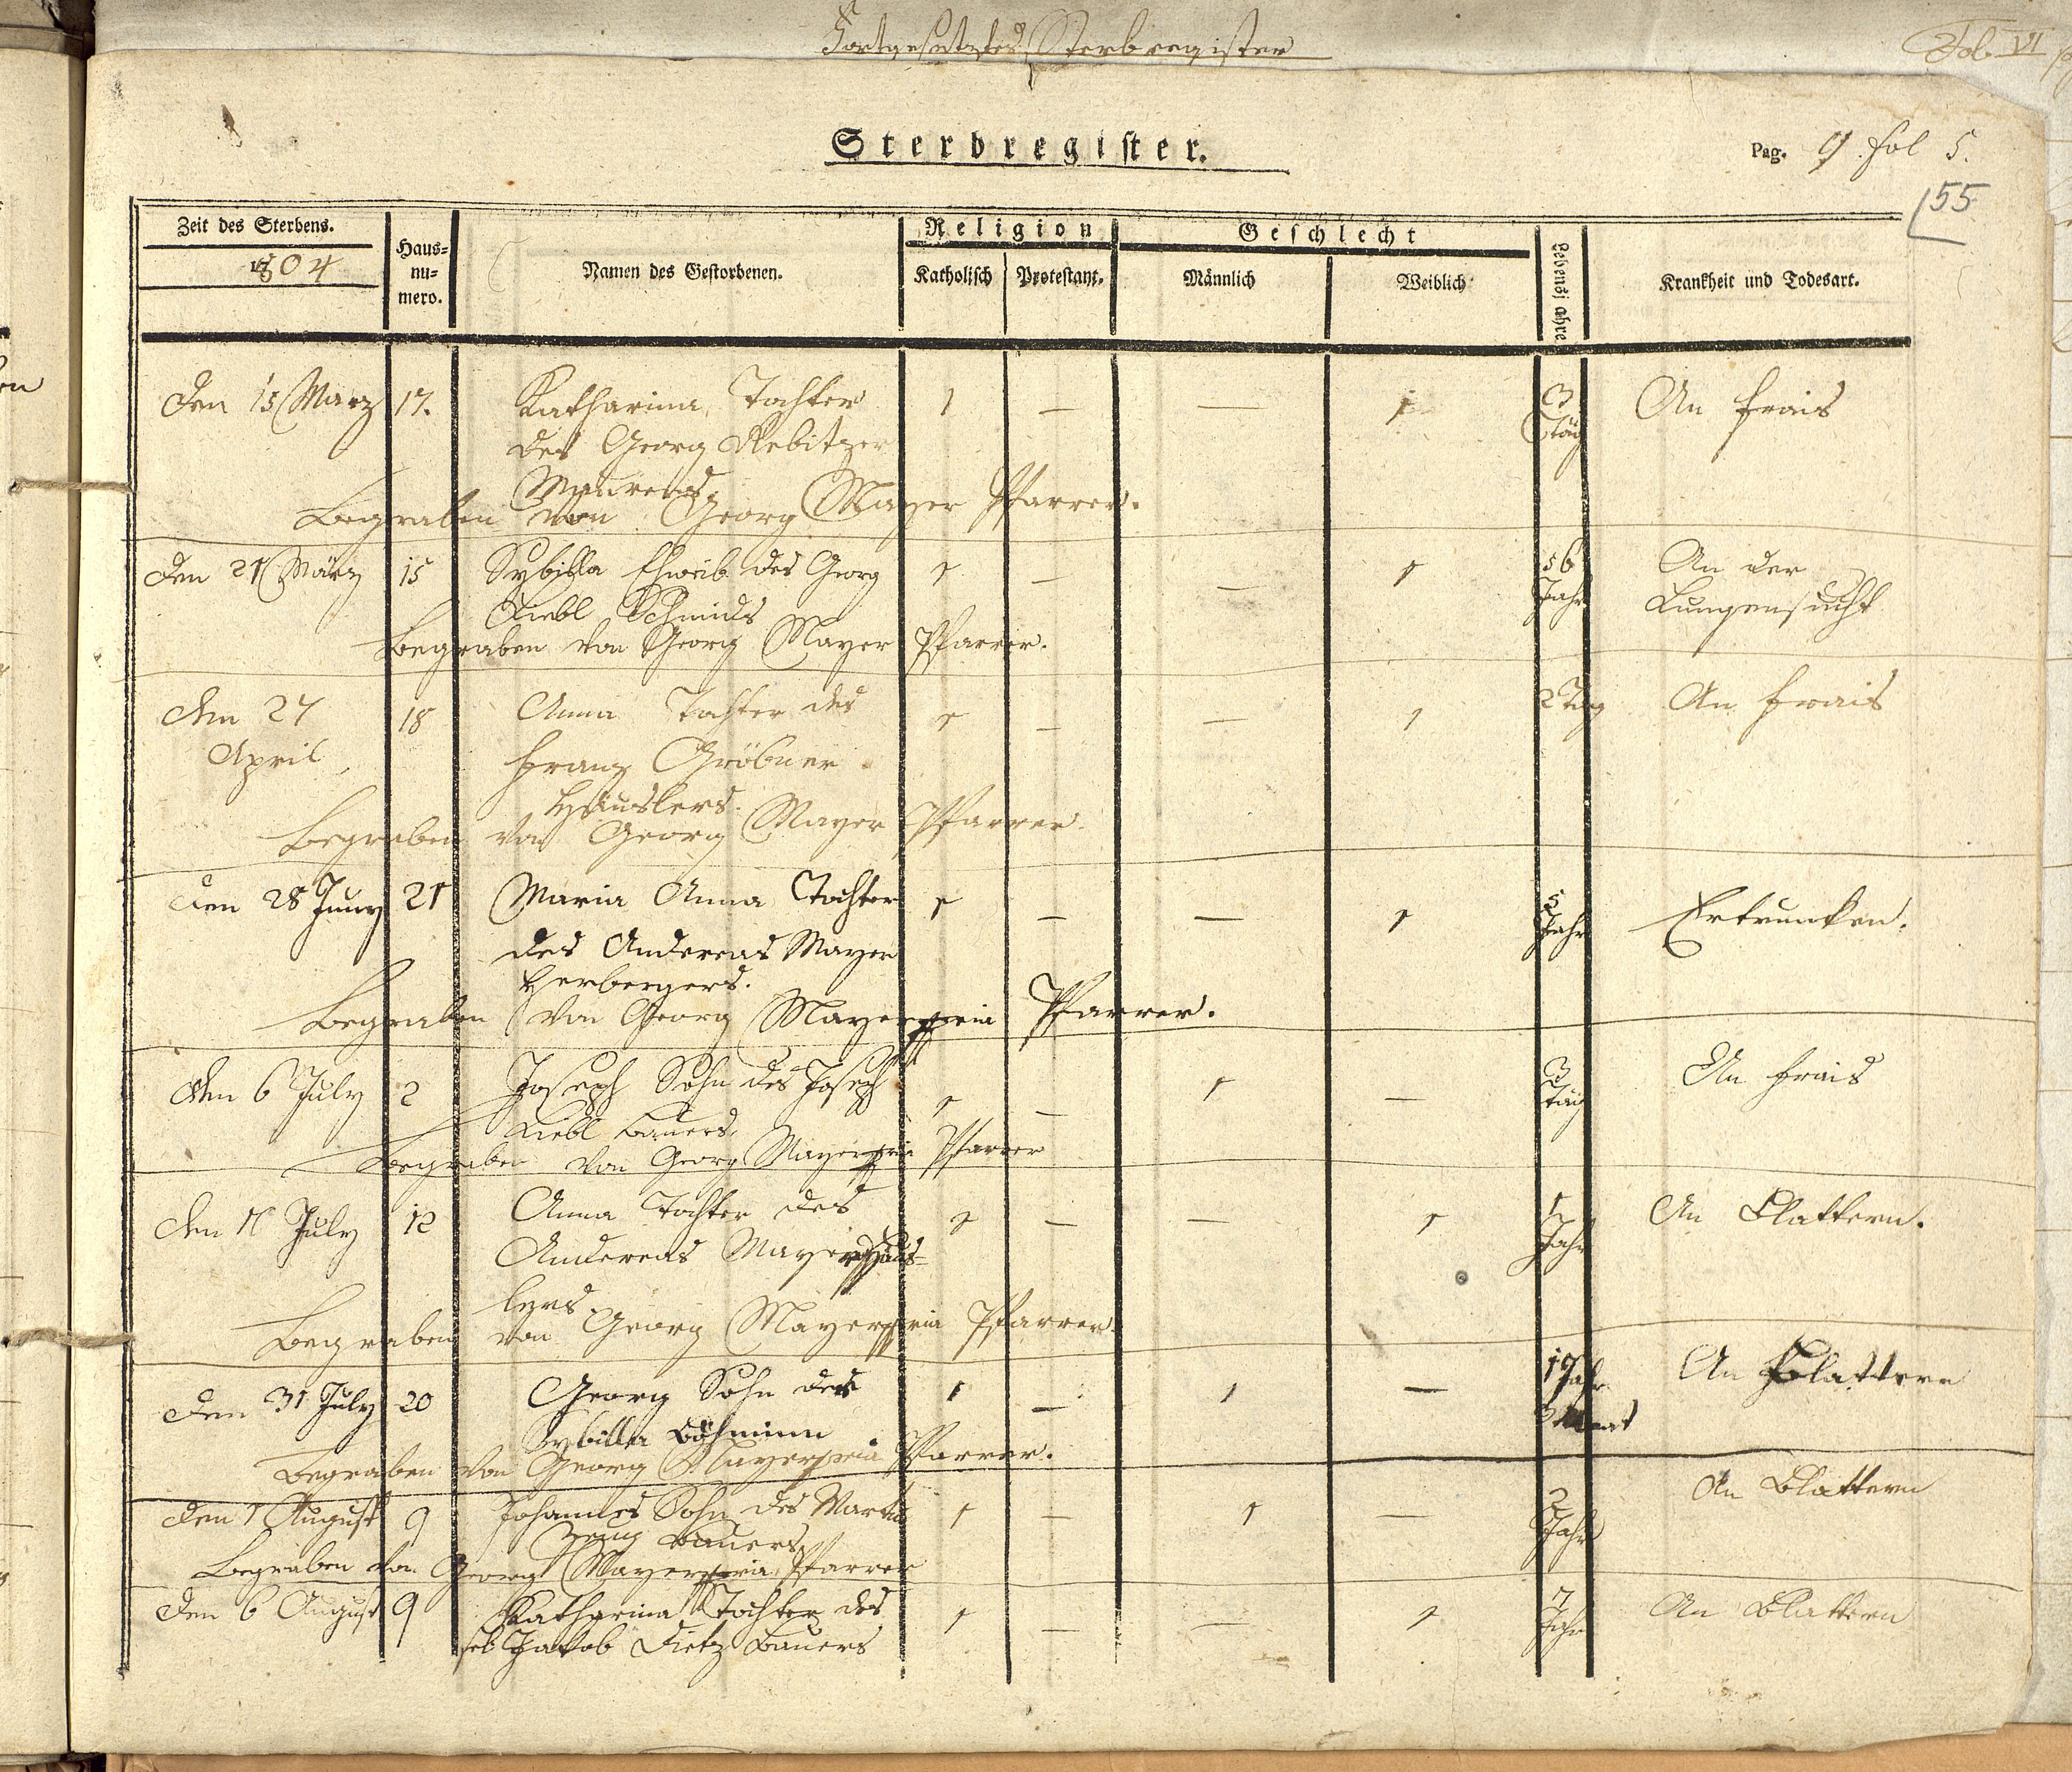 Fortgesetztes Sterbregister
Fol. VI
Sterbregister.
Pag. 9. fol 5.
55
Zeit des Sterbens.
1804
Haus-
nu-
mero.
Namen des Gestorbenen.
Religion
Katholisch
Protestant.
Geschlecht
Männlich
Weiblich
Lebensjahre
Krankheit und Todesart.
den 15 Marz 17. Katharina Tochter 1 — — 1 3 An Frais
des Georg Rebitzer Täg
Maurers
Begraben von Georg Mayer Pfarrer.
den 21 März 15 Sybilla Eheweib des Georg 1 — — 1 56 An der
Liebl Schmids Jahr Lungensucht
Begraben von Georg Mayer Pfarrer.
den 24 18 Anna Tochter des 1 — — 1 2 Täg An Frais
April Franz Gröbner
Häuslers.
Begraben von Georg Mayer Pfarrer.
den 28 Juny 21 Maria Anna Tochter 1 — — 1 5 Ertruncken.
des Andereas Mayer Jahr
Herbergers.
Begraben von Georg Mayer Pfarrer.
den 6 July 2 Joseph Sohn des Joseph 1 — 1 — 3 An Frais
Liebl Bauers. Täg
Begraben von Georg Mayer Pfarrer
den 11 July 12 Anna Tochter des 1 — — 1 1 An Blattern.
Andereas Mayer Häus- Jahr
lers
Begraben von Georg Mayer Pfarrer.
den 31 July 20 Georg Sohn der 1 — 1 — 1 Jahr An Blattern
Sybilla Böhminn 3 Monat
Begraben von Georg Mayer Pfarrer.
den 1 August 9 Johannes Sohn des Martin 1 — 1 — 2 An Blattern
Bauers Jahr
Begraben von Georg Mayer Pfarrer
den 6 August 9 Katharina Tochter des 1 — — 1 7 An Blattern
sel Jakob Dietz Bauers Jahr